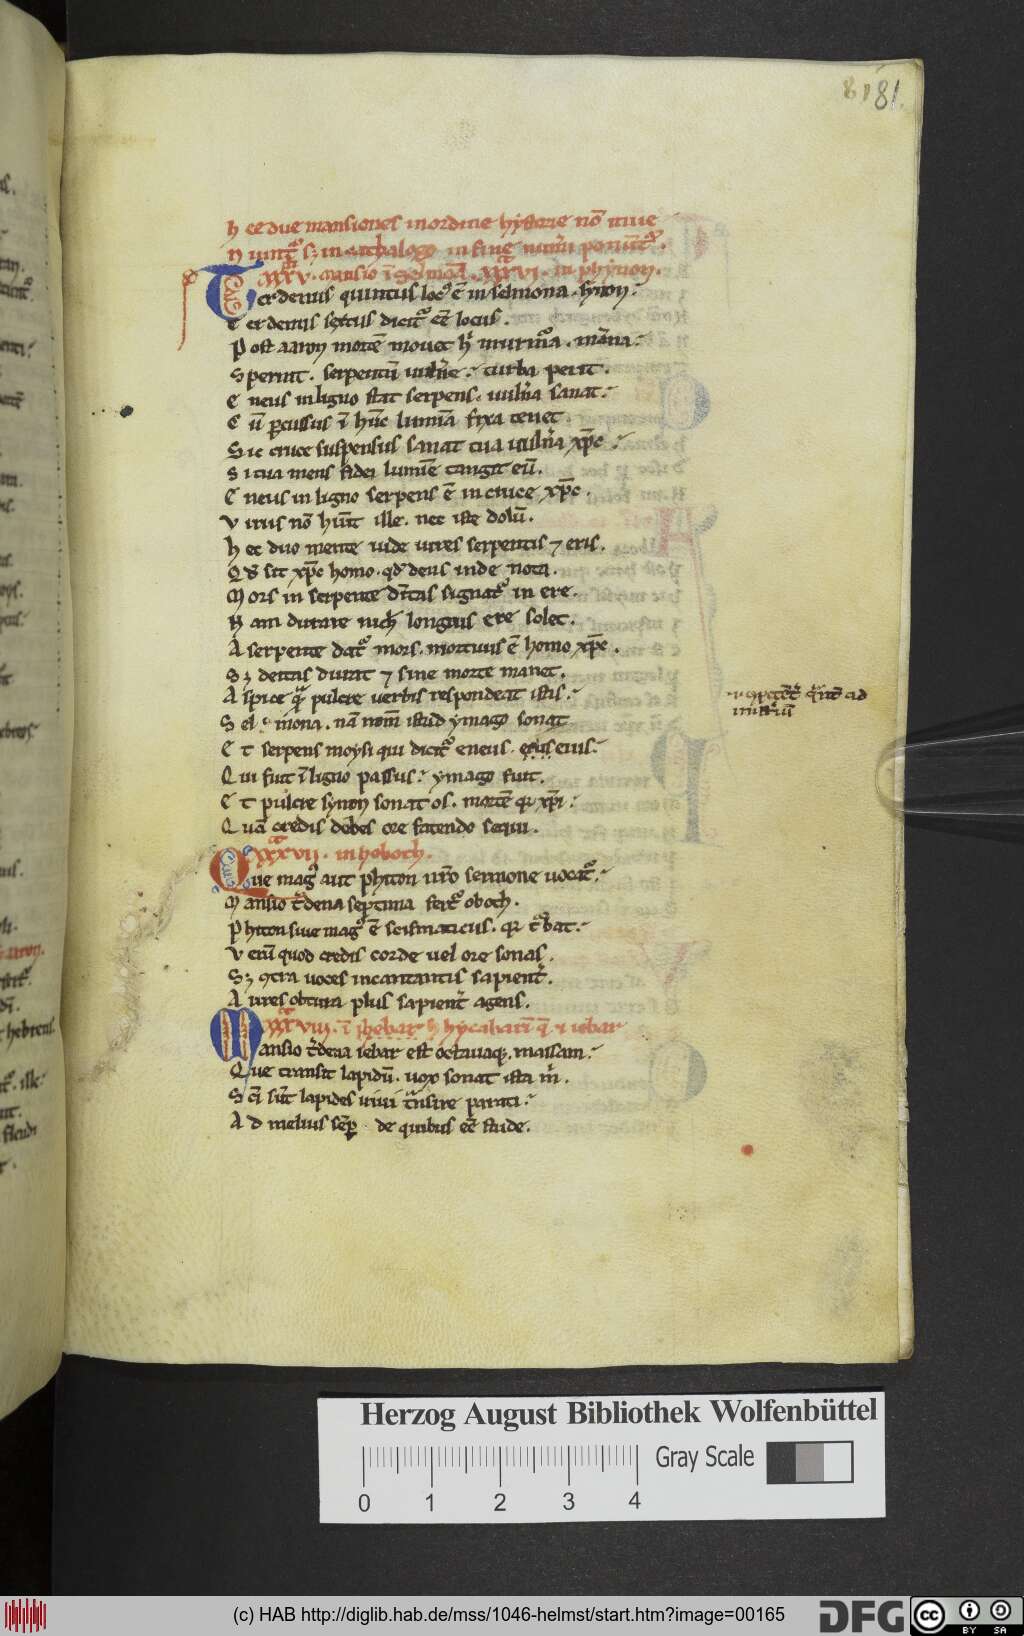 81 81.
h ee due mansiones in ordine hystorie nō inue
n iunt᷑ sꝫ in cathalogo in fine numi ponūt᷑.
XXXV. mansio ī selmōa. XXXVI. in phynon.
Terdenus quintus loc᷒ ē in selmona. synon.
Terdenus sextus dicit᷑ eē locus.
Post aaron mortē mouet h᷒ murm̄a. māna.
Spernit. serpentū uuln̄e. turba perit.
Eneus in ligno stat serpens. uuln̄a sanat.
Cū ꝑcussus ī hūc lumīa fixa tenet.
Sic cruce suspensus sanat tua uuln̄a xp̄c.
Si tua mens fidei lumīe tangit eū.
Eneus in ligno serpens ē in cruce xp̄c.
Virus nō hūt ille. nec iste dolū.
hec duo mente uide uires serpentis ⁊ eris.
Qd sit xp̄c homo. qd deus inde nota.
Mors in serpente dītas signat᷑ in ere.
Nam durare nich longius ere solet.
A serpente dat᷑ mors. mortuus ē homo xp̄c.
Sꝫ deitas durat ⁊ sine morte manet.
Aspice qͣ pulcre uerbis respondeat istis.
Sel mona. nā nom̄ istud ymago sonat
Et serpens moysi qui dicit᷑ eneus. eius eius.
Qui fuit ī ligno passus. ymago fuit.
Et pulcre synon sonat os. mortē qꝫ xp̄i.
Quā credis debes ore fatendo sequi.
XXXVII. in heboth.
Que mag᷒ aut phiton uͬo sermone uocat᷑.
Mansio t᷑dena septima fert᷑ oboth.
Phiton siue mag᷒ ē scismaticus. qꝫ t᷑bat.
Verū quod credis corde uel ore sonas.
Sꝫ ꝯtra uoces incantantis sapient᷑.
Aures obtura plus sapient᷑ agens.
XXXVIII. ī ihebar
Mansio t᷑dena iebar est octauaqꝫ. massam.
Que transit lapidū. uox sonat ista m̄.
Sc̄i sūt lapides uiui tͣnsire parati.
Ad melius semꝑ. de quibus eē stude.
Herzog August Bibliothek Wolfenbüttel
Gray Scale
0 1 2 3 4
(c) HAB http://diglib.hab.de/mss/1046-helmst/start.htm?image=00165
DFG
cc BY SA